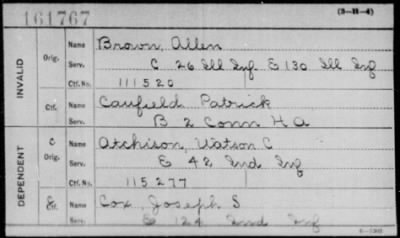 161767
(3-H-4)
INVALID
Orig.
Name Brown, Allen
Serv. C 26 Ill Inf E 130 Ill Inf
Ctf. No. 111520
Ctf. Name Caufield Patrick
Serv. B 2 Conn H A
DEPENDENT
C
Orig.
Name Atchison, Watson C
Serv. E 42 Ind Inf
Ctf. No. 115277
Name Cox, Joseph S
Serv. E 124 Ind Inf